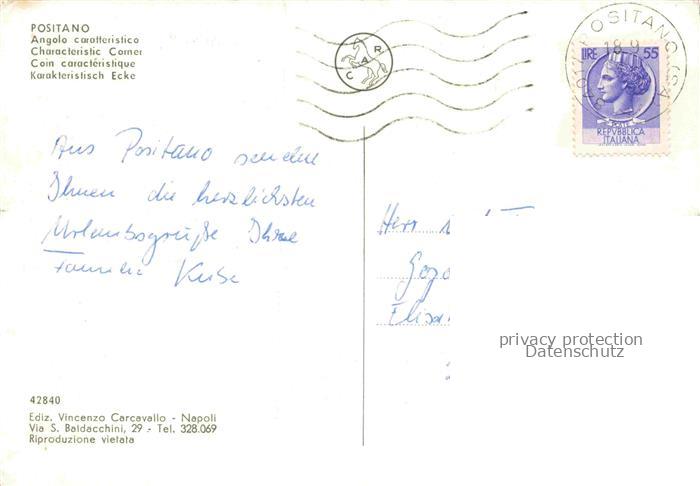 POSITANO
Angolo caratteristico
Characteristic Corner
Coin caractéristique
Karakteristisch Ecke
CAR
84017 POSITANO (SA)
18.9
LIRE 55
POSTE
REPVBBLICA
ITALIANA
Aus Positano senden
Ihnen die herzlichsten
Urlaubsgrüße Ihre
Familie Kube
Herr
Elisa
privacy protection
Datenschutz
42840
Ediz. Vincenzo Carcavallo - Napoli
Via S. Baldacchini, 29 - Tel. 328.069
Riproduzione vietata